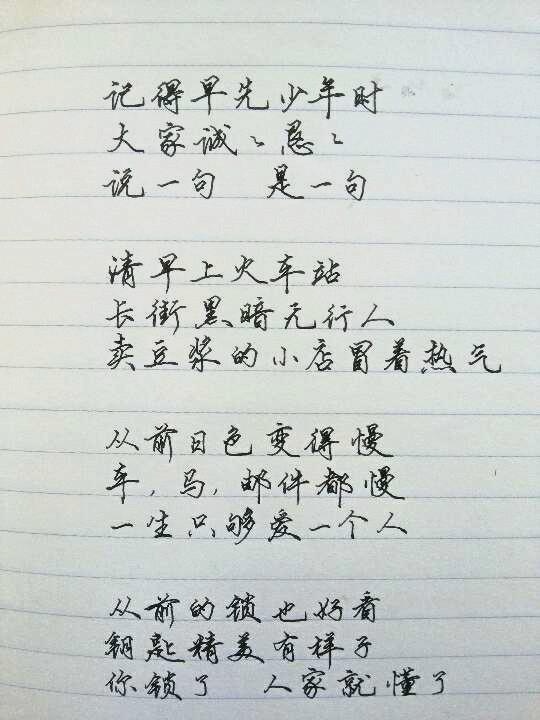 记得早先少年时
大家诚々恳々
说一句 是一句
清早上火车站
长街黑暗无行人
卖豆浆的小店冒着热气
从前日色变得慢
车,马,邮件都慢
一生只够爱一个人
从前的锁也好看
钥匙精美有样子
你锁了 人家就懂了